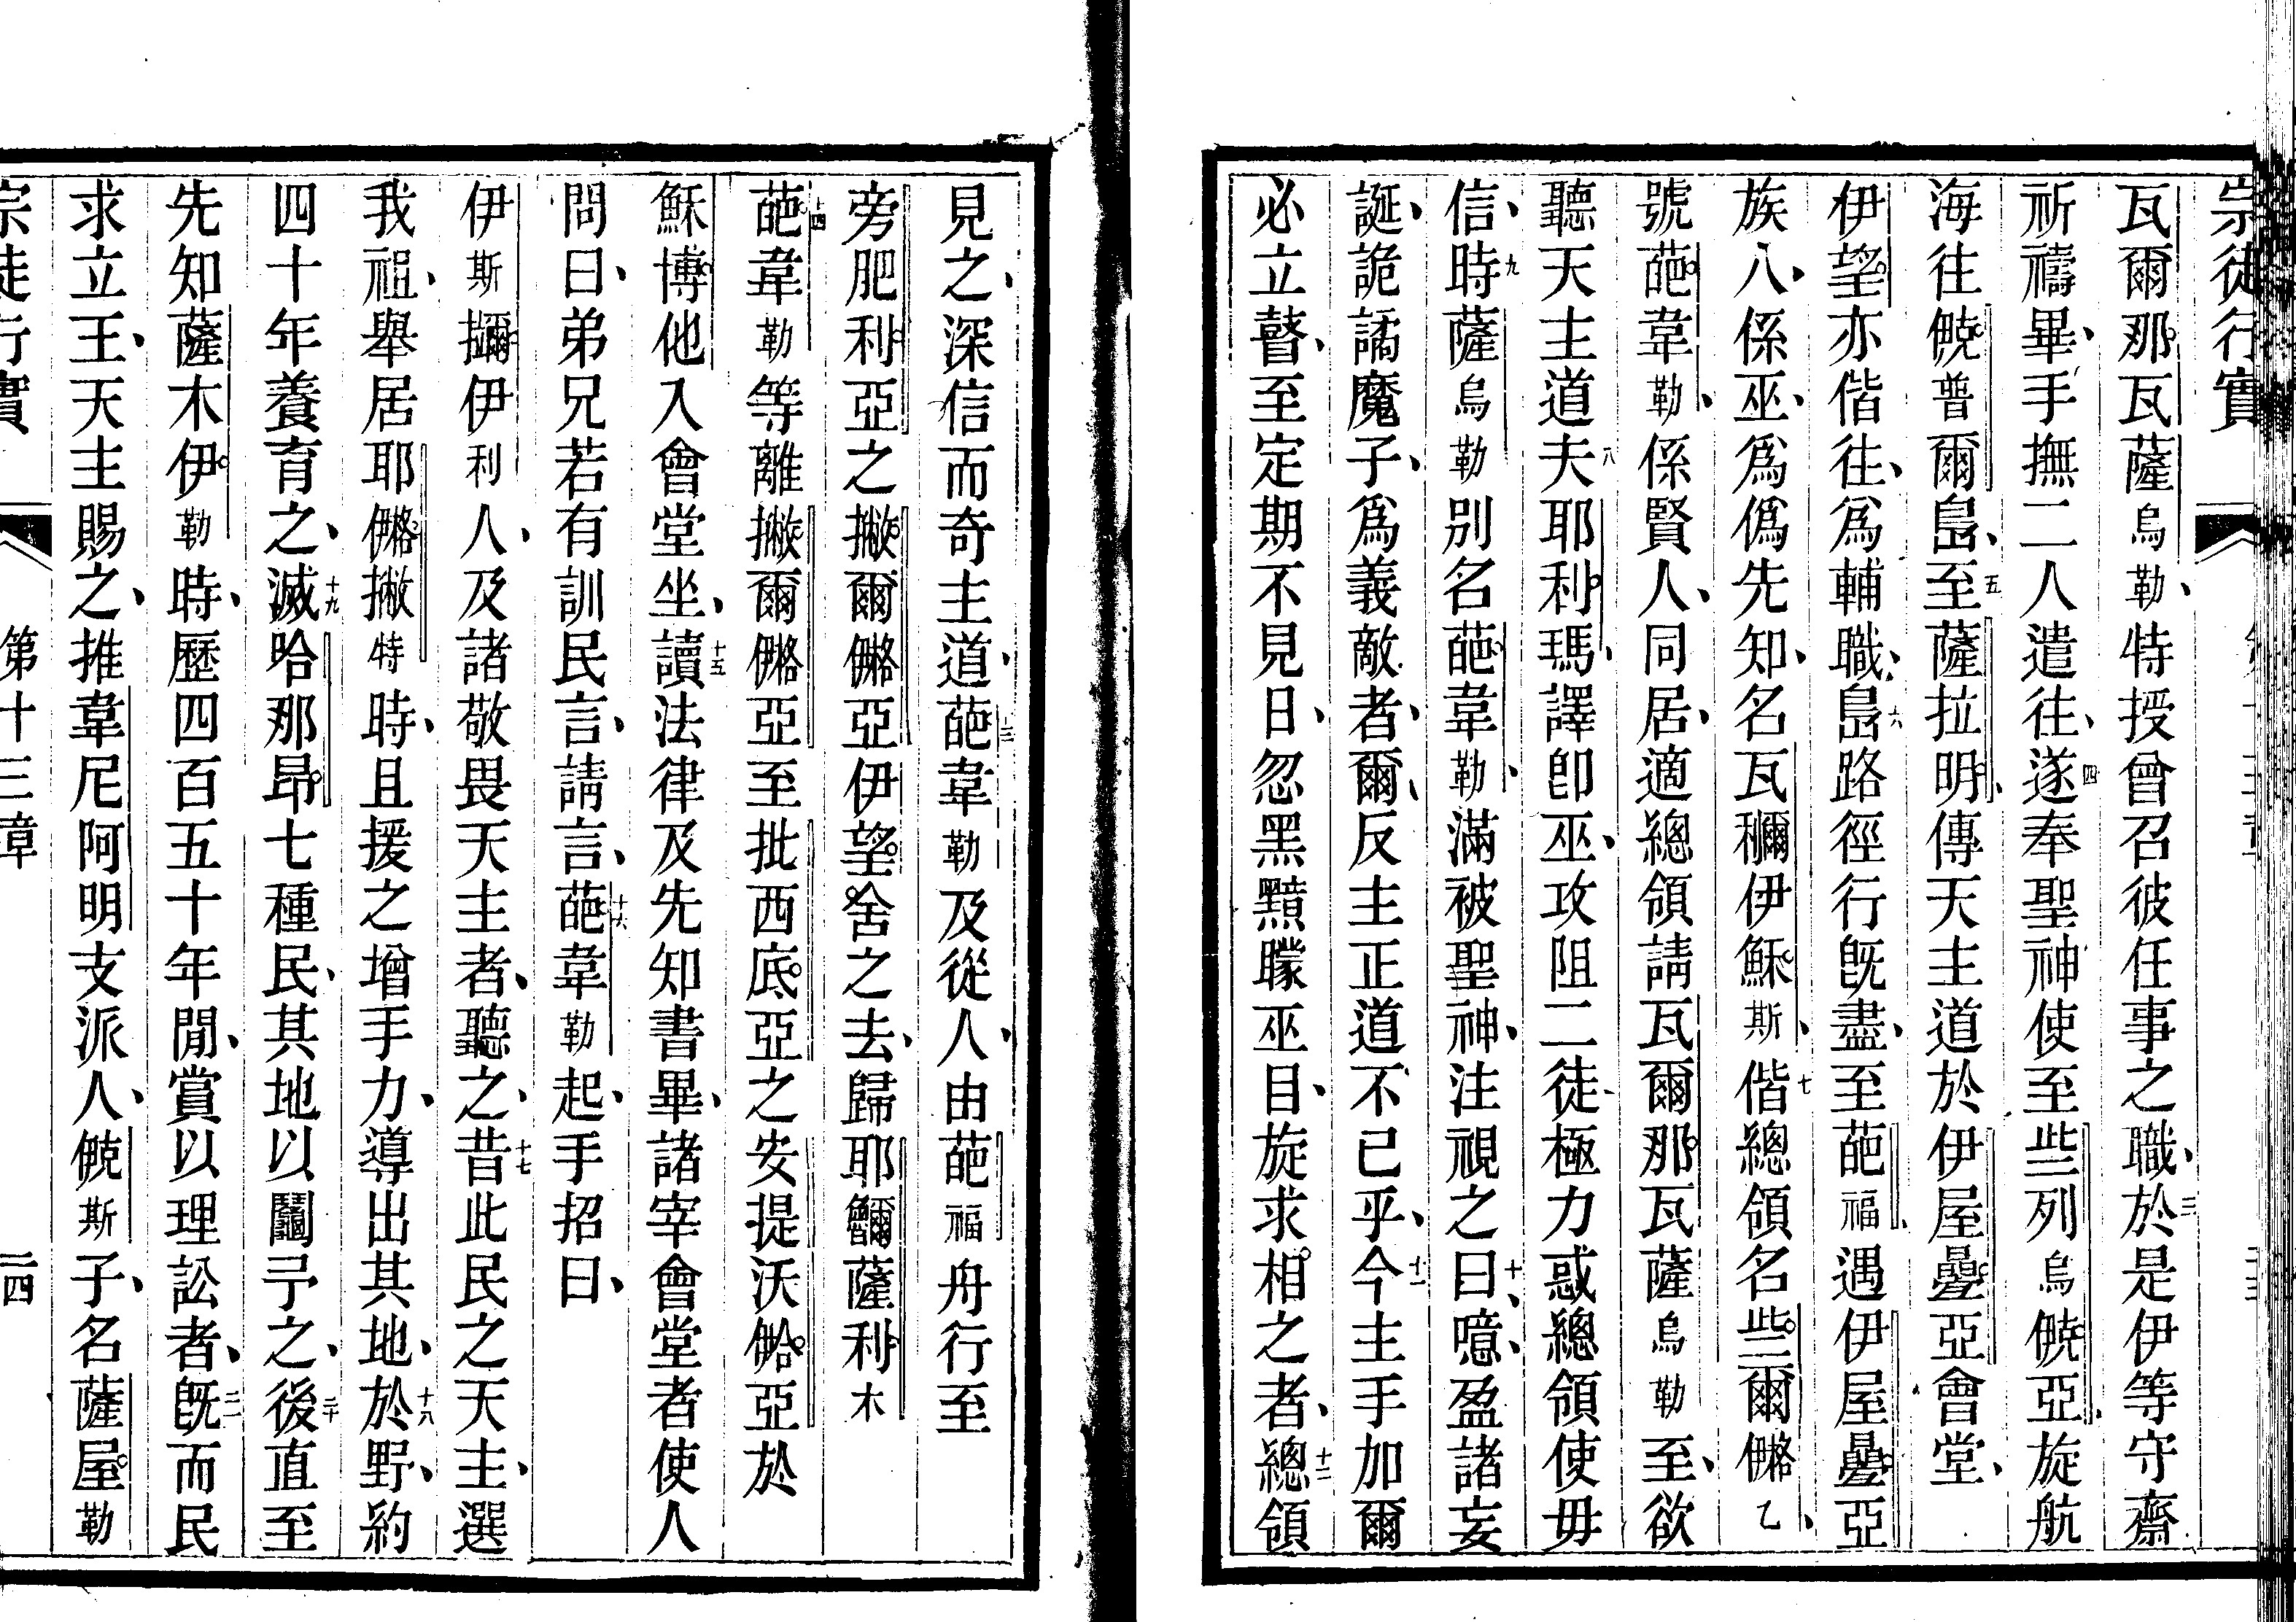 宗徒行實
瓦爾那瓦薩烏勒、特授曾召彼任事之職、三於是伊等守齋
祈禱畢、手撫二人遣往、四遂奉聖神使至些列烏⿰伊克亞、旋航
海往⿰伊克普爾島、五至薩拉明、傳天主道於伊屋疊亞會堂、
伊望亦偕往、爲輔職、六島路徑行旣盡、至葩福、遇伊屋疊亞
族人、係巫、爲僞先知、名瓦穪伊穌斯、七偕總領名些爾⿰伊格乙、
號葩韋勒、係賢人、同居、適總領請瓦爾那瓦薩烏勒至、欲
聽天主道、八夫耶利瑪、譯卽巫、攻阻二徒、極力惑總領使毋
信、九時薩烏勒別名葩韋勒、滿被聖神、注視之、十曰、噫、盈諸妄
誕、詭譎魔子、爲義敵者、爾反主正道不已乎、十一今主手加爾
必立瞽、至定期不見日、忽黑黯矇巫目、旋求相之者、十二總領
見之、深信而奇主道、十三葩韋勒及從人、由葩福舟行至
旁肥利亞之撇爾⿰伊格亞、伊望舍之去、歸耶⿰魯爾薩利木
十四葩韋勒等離撇爾⿰伊格亞至批西底亞之安提沃⿰伊哈亞、於
穌博他入會堂坐、十五讀法律及先知書畢、諸宰會堂者使人
問曰、弟兄若有訓民言、請言、十六葩韋勒起、手招曰、
伊斯擟伊利人、及諸敬畏天主者、聽之、十七昔此民之天主、選
我祖、舉居耶⿰伊格撇特時、且援之增手力、導出其地、十八於野、約
四十年養育之、十九滅哈那昂七種民、其地以鬮予之、二十後直至
先知薩木伊勒時、歷四百五十年間、賞以理訟者、二一旣而民
求立王、天主賜之、推韋尼阿明支派人、⿰伊克斯子、名薩屋勒
宗徒行實 第十三章 二四